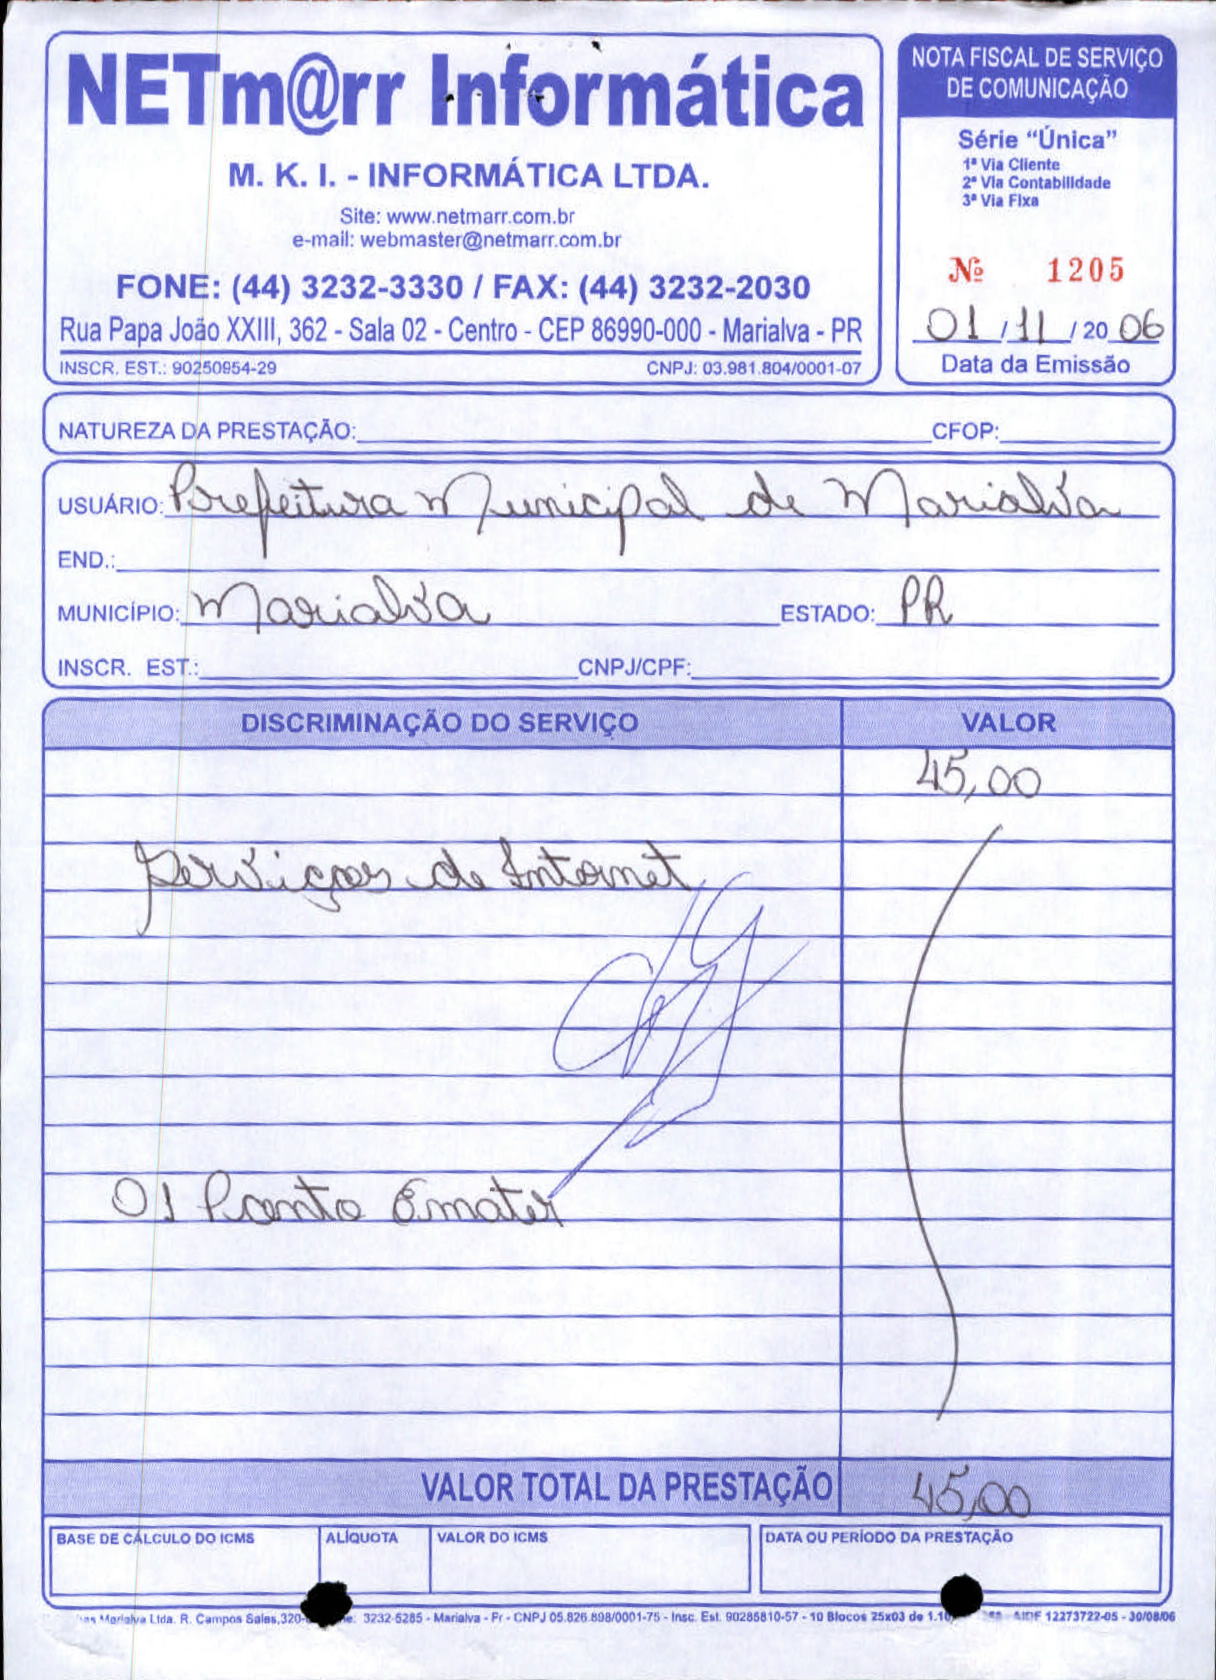 NETm@rr Informática
M. K. I. - INFORMÁTICA LTDA.
Site: www.netmarr.com.br
e-mail: webmaster@netmarr.com.br
FONE: (44) 3232-3330 / FAX: (44) 3232-2030
Rua Papa João XXIII, 362 - Sala 02 - Centro - CEP 86990-000 - Marialva - PR
INSCR. EST.: 90250954-29 CNPJ: 03.981.804/0001-07
NOTA FISCAL DE SERVIÇO
DE COMUNICAÇÃO
Série "Única"
1ª Via Cliente
2ª Via Contabilidade
3ª Via Fixa
Nº 1205
01/11/2006
Data da Emissão
NATUREZA DA PRESTAÇÃO: CFOP:
USUÁRIO: Prefeitura Municipal de Marialva
END.:
MUNICÍPIO: Marialva ESTADO: PR
INSCR. EST.: CNPJ/CPF:
DISCRIMINAÇÃO DO SERVIÇO VALOR
45,00
Serviços de Internet
01 Ponto Emater
VALOR TOTAL DA PRESTAÇÃO 45,00
BASE DE CÁLCULO DO ICMS ALÍQUOTA VALOR DO ICMS DATA OU PERÍODO DA PRESTAÇÃO
Marialva Ltda. R. Campos Sales, 320- 3232-5285 - Marialva - Pr - CNPJ 05.826.898/0001-75 - Insc. Est. 90285810-57 - 10 Blocos 25x03 de 1.10 - AIDF 12273722-05 - 30/08/06